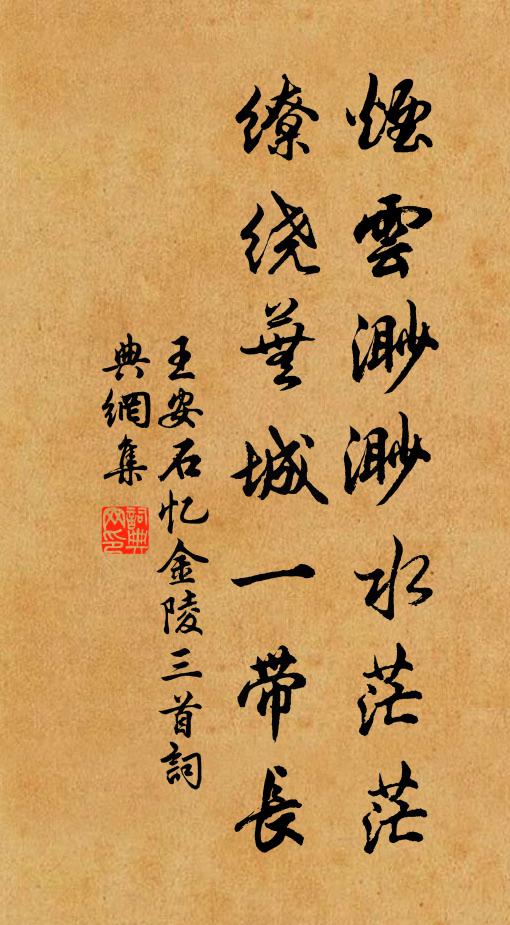 煙雲渺渺水茫茫
繚绕蕪城一带長
王安石忆金陵三首詞
典網集
詞典网印